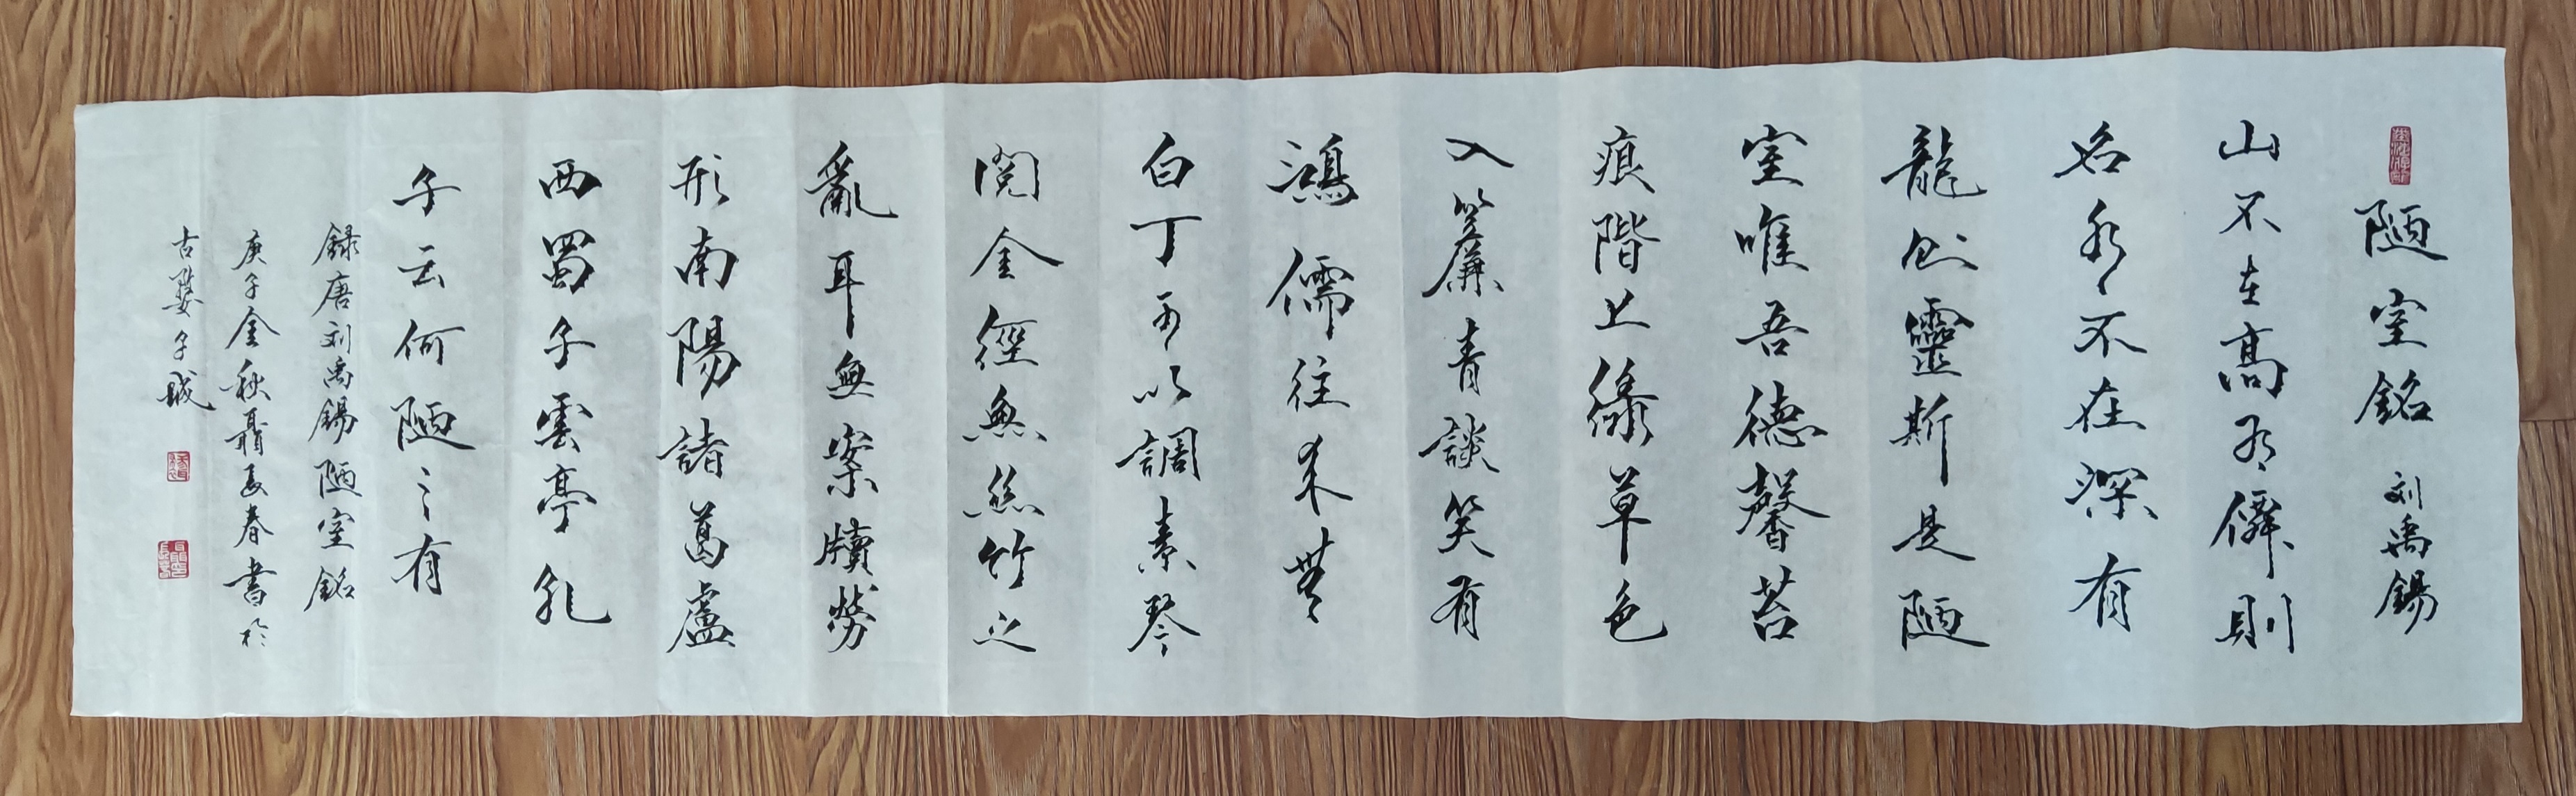 陋室銘 刘禹錫
山不在高有僊則
名水不在深有
龍則靈斯是陋
室唯吾德馨苔
痕階上綠草色
入簾青談笑有
鴻儒往来無
白丁可以調素琴
閱金經無絲竹之
亂耳無案牘勞
形南陽諸葛盧
西蜀子雲亭孔
子云何陋之有
録唐刘禹錫陋室銘
庚子金秋聶長春書於
古婺子城